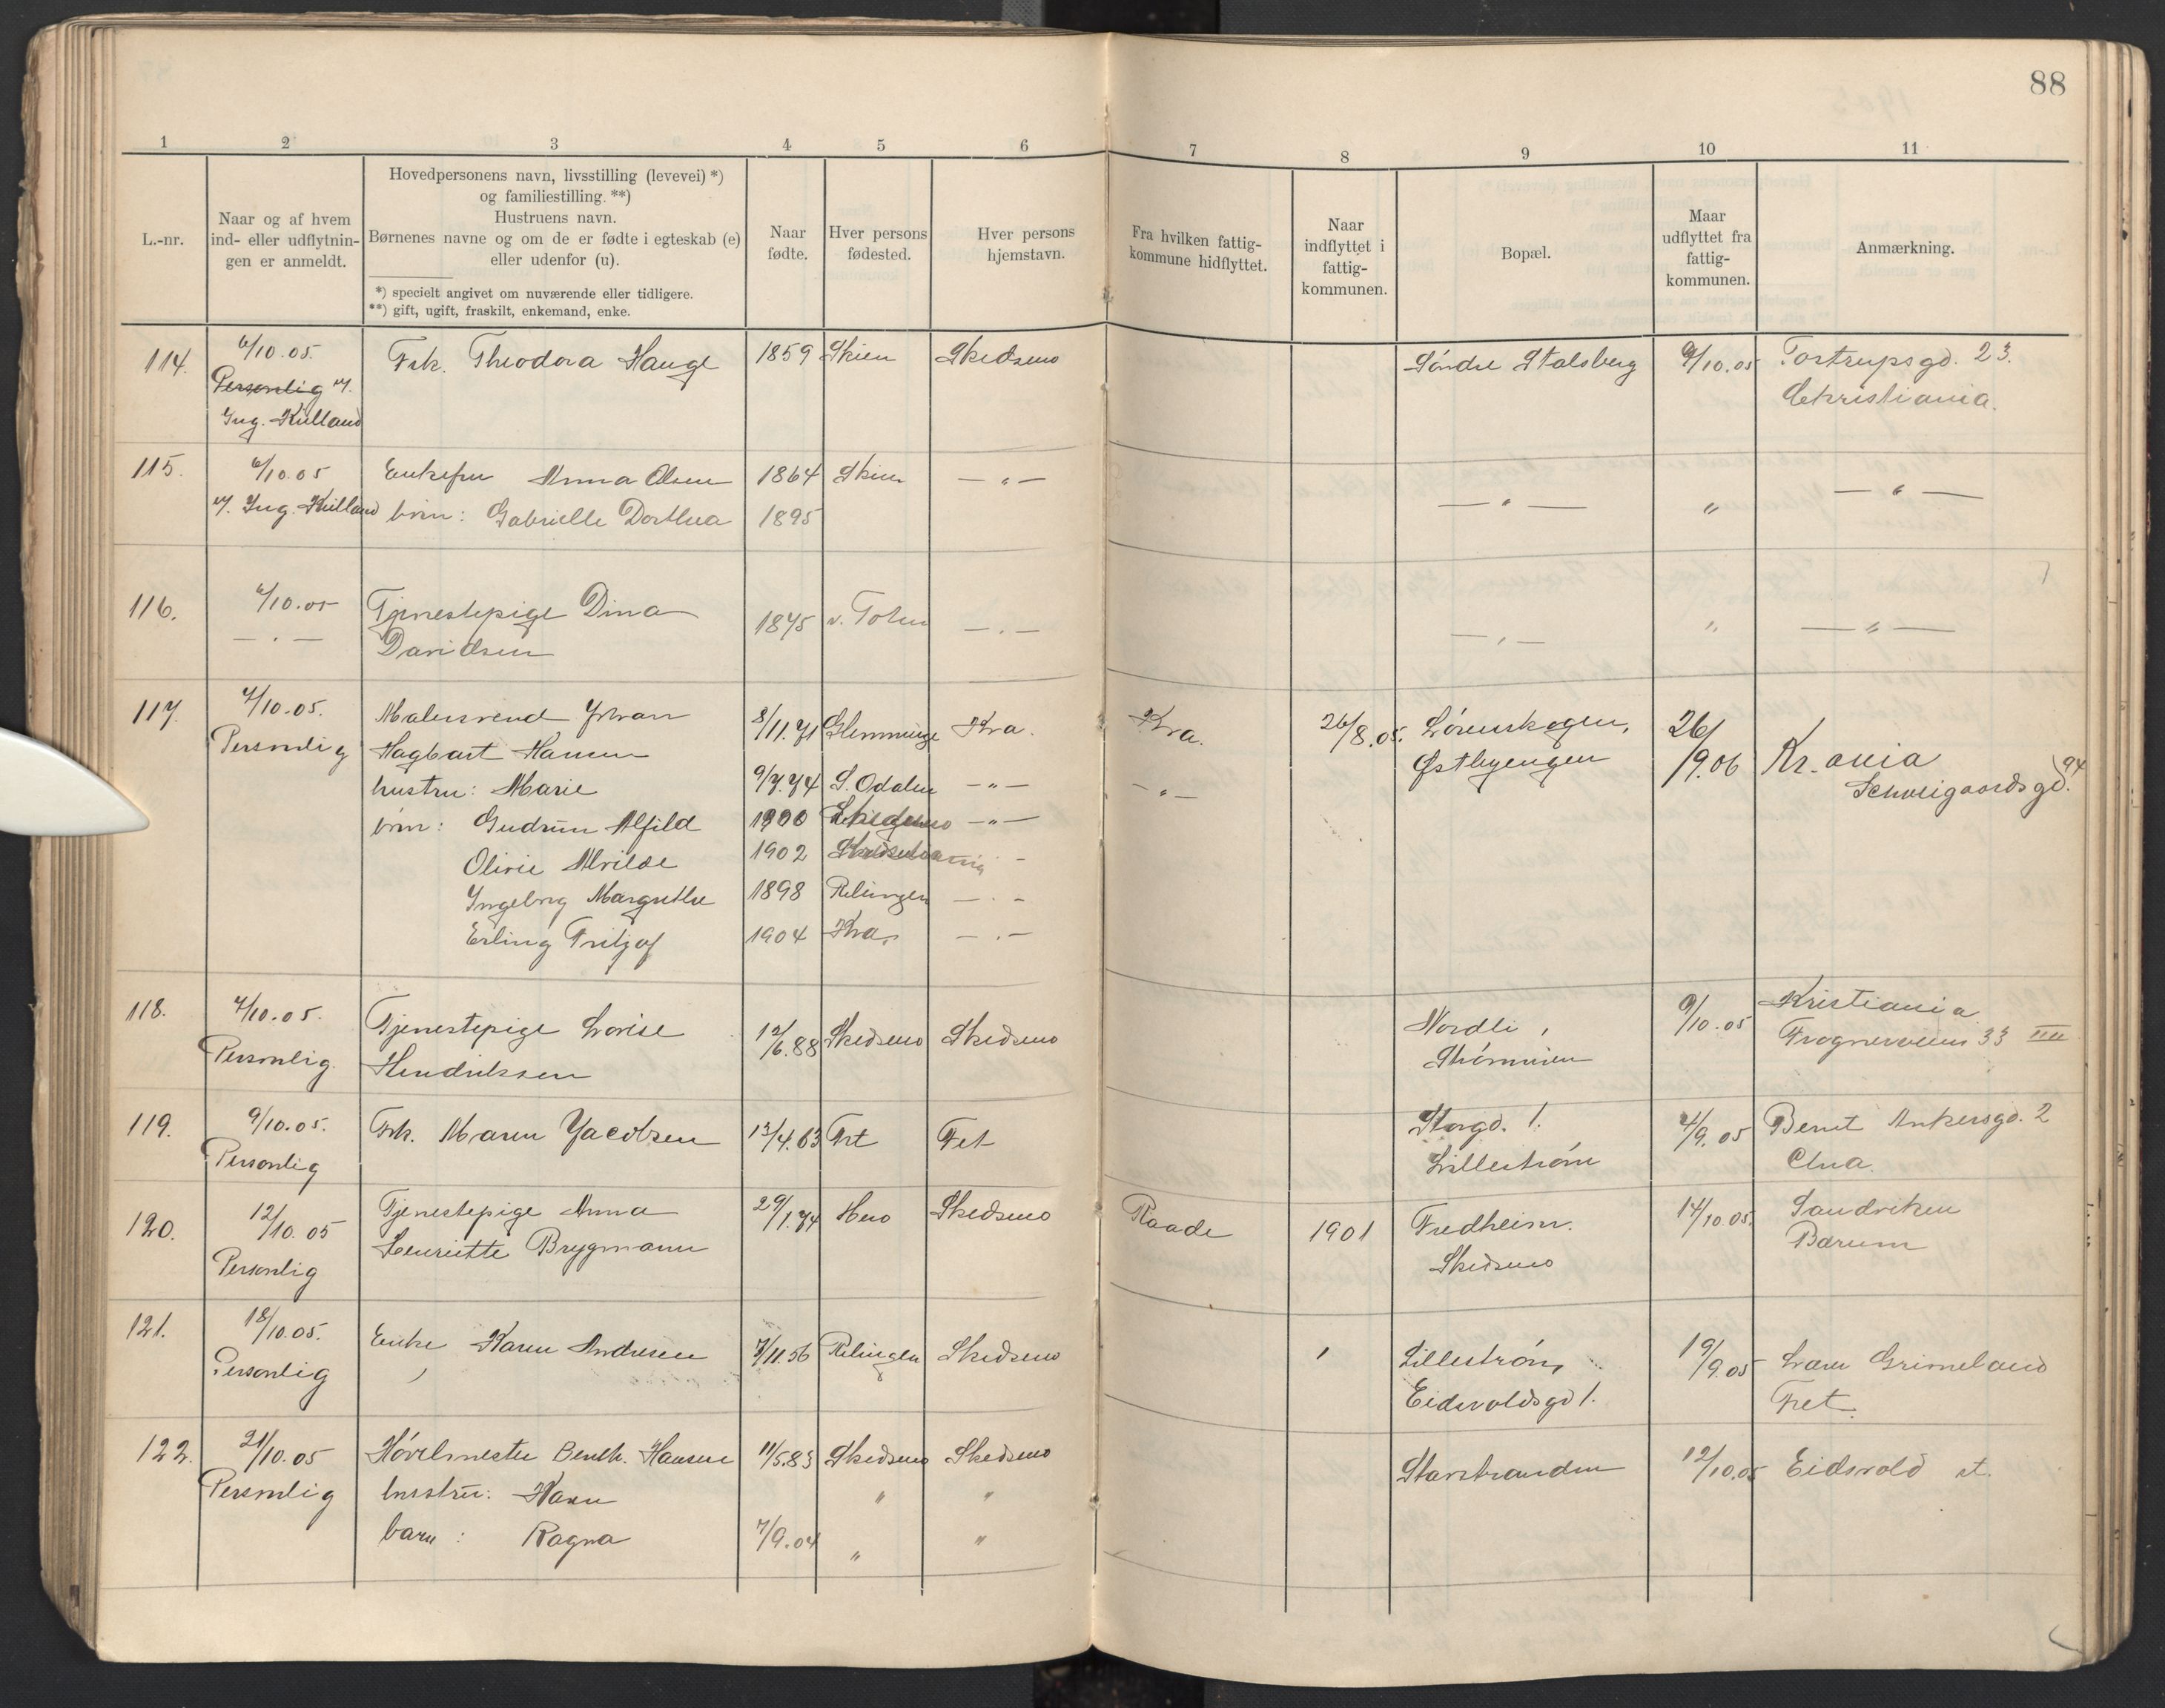 88
1 2 3 4 5 6 7 8 9 10 11
L.-nr.
Naar og af hvem
ind- eller udflytnin-
gen er anmeldt.
Hovedpersonens navn, livsstilling (levevei) *)
og familiestilling. **)
Hustruens navn.
Børnenes navne og om de er fødte i egteskab (e)
eller udenfor (u).
*) specielt angivet om nuværende eller tidligere.
**) gift, ugift, fraskilt, enkemand, enke.
Naar
fødte.
Hver persons
fødested.
Hver persons
hjemstavn.
Fra hvilken fattig-
kommune hidflyttet.
Naar
indflyttet i
fattig-
kommunen.
Bopæl.
Maar
udflyttet fra
fattig-
kommunen.
Anmærkning.
114. 6/10.05. Frk. Theodora Hauge 1859 Skien Skedsmo Søndre Stalsberg 9/10.05 Tostrupsgd. 23.
Personlig v.
Ing. Kielland
Christiania.
115. 6/10.05 Enkefru Anna Olsen 1864 Skien — " — — " — " — " —
v. Ing. Kielland børn: Gabrielle Dorthea 1895
116. 6/10.05 Tjenestepige Dina 1875 v. Toten — " — — " — " — " —
— " — Davidsen
117. 7/10.05. Malersvend Johan 8/11.71 Glemminge Kra. Kra. 26/8.05. Lørenskogen, 26/9.06 Kr.ania
Personlig Hagbart Hansen Østbyengen Schweigaardsgd. 94
hustru: Marie 9/7.74 S. Odalen — " — — " —
børn: Gudrun Alfild 1900 — " —
Olivie Alvilde 1902
Ingeborg Margrethe 1898 Relingen — " —
Erling Fritjof 1904 Kra. — " —
118. 7/10.05. Tjenestepige Lovise 12/6.88 Skedsmo Skedsmo Nordli, 9/10.05 Kristiania
Personlig. Hendriksen Strømmen Frognerveien 33 IIII
119. 9/10.05. Frk. Maren Jacobsen 13/4.63 Fet Fet Storgd. 1. 4/9.05 Bernt Ankersgd. 2
Personlig Lillestrøm Chra.
120. 12/10.05 Tjenestepige Anna 29/1.74 Skedsmo Raade 1901 Fredheim. 14/10.05. Sandviken
Personlig Henriette Brygmann Skedsmo Bærum
121. 18/10.05. Enke Karen Andresen 7/11.56 Relingen Skedsmo Lillestrøm, 19/9.05 Grimeland
Personlig Eidsvoldsgd 1. Fet.
122. 21/10.05 Høvelmester Benth. Hansen 11/5.83 Skedsmo Skedsmo 12/10.05 Eidsvold st.
Personlig hustru: Karen " "
barn: Ragna 7/9.04 " "